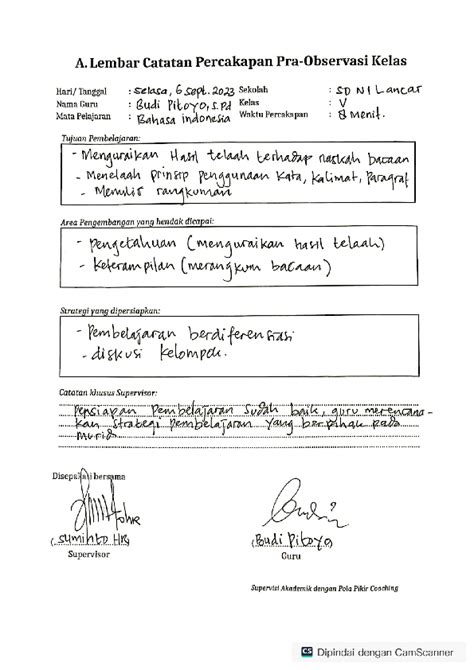 A. Lembar Catatan Percakapan Pra-Observasi Kelas
Hari/ Tanggal : Selasa, 6 Sept. 2023 Sekolah : SD N 1 Lancar
Nama Guru : Budi Pitoyo, S.Pd Kelas : V
Mata Pelajaran : Bahasa indonesia Waktu Percakapan : 8 Menit.
Tujuan Pembelajaran:
- Menguraikan Hasil telaah terhadap naskah bacaan
- Menelaah prinsip penggunaan kata, kalimat, paragraf
- Menulis rangkuman
Area Pengembangan yang hendak dicapai:
- Pengetahuan (menguraikan hasil telaah)
- Keterampilan (merangkum bacaan)
Strategi yang dipersiapkan:
- Pembelajaran berdiferensiasi
- diskusi kelompok.
Catatan khusus Supervisor:
Persiapan Pembelajaran Sudah baik, guru merencana-
kan Strategi Pembelajaran yang berpihak pada
murid
Disepakati bersama
(Suminto HR)
(Budi Pitoyo)
Supervisor
Guru
Supervisi Akademik dengan Pola Pikir Coaching
CS Dipindai dengan CamScanner